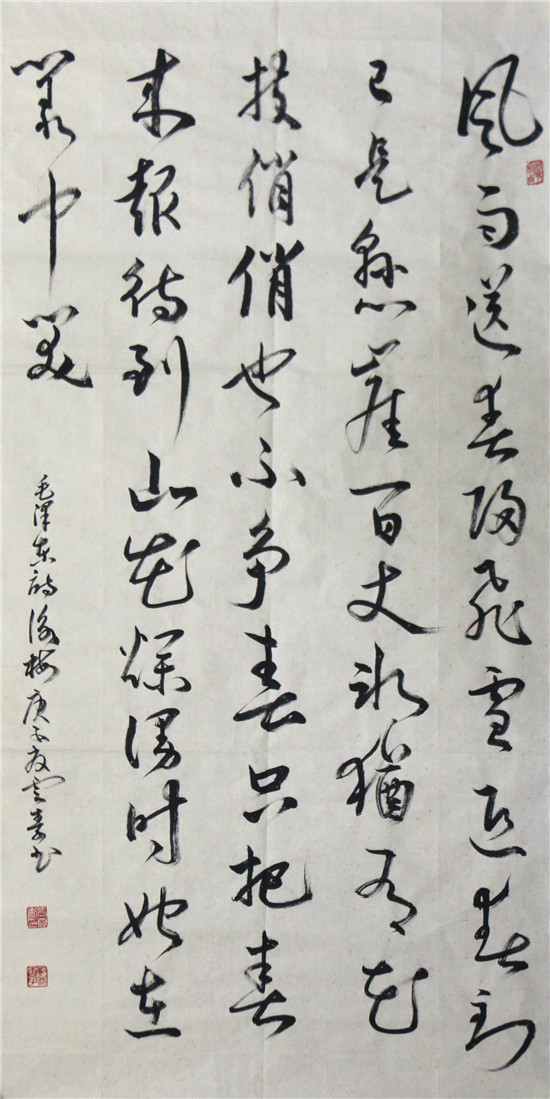 風雨送春歸飛雪迎春到
已是懸崖百丈冰猶有花
枝俏俏也不争春只把春
来報待到山花爛漫时她在
叢中笑
毛澤东詞詠梅庚子书